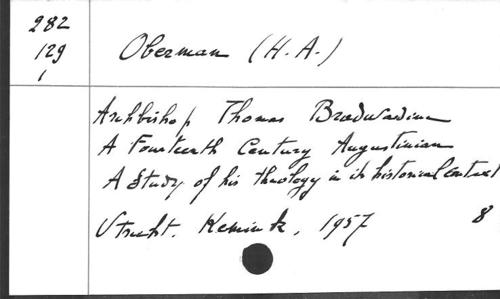 282
129
1
Oberman (H.A.)
Archbishop Thomas Bradwardine
A Fourteenth Century Augustinian
A Study of his theology in its historical context
Utrecht. Kemink, 1957 8